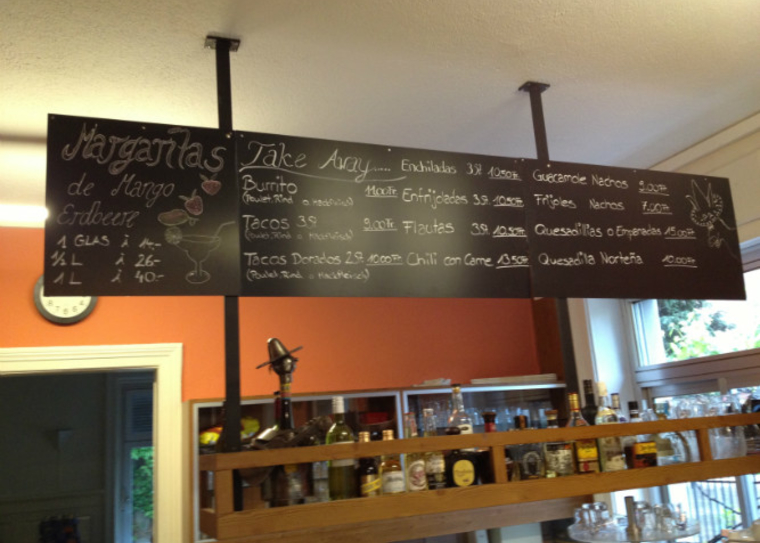 Margaritas
de Mango
Erdbeere
1 GLAS à
½ L à 26.-
1 L à 40.-
Take Away....
Burrito 11.00Fr.
(Poulet, Rind o. Hackfleisch)
Tacos 3 St 9.00Fr.
(Poulet, Rind o. Hackfleisch)
Tacos Dorados 2 St 10.00Fr
(Poulet, Rind o. Hackfleisch)
Enchiladas 3 St 10.50Fr.
Enfrijoladas 3 St 10.50Fr
Flautas 3 St 10.50Fr
Chili con Carne 13.50Fr
Guacamole Nachos 9.00Fr
Frijoles Nachos 7.00Fr
Quesadillas o Empanadas 15.00Fr
Quesadilla Norteña 10.00Fr